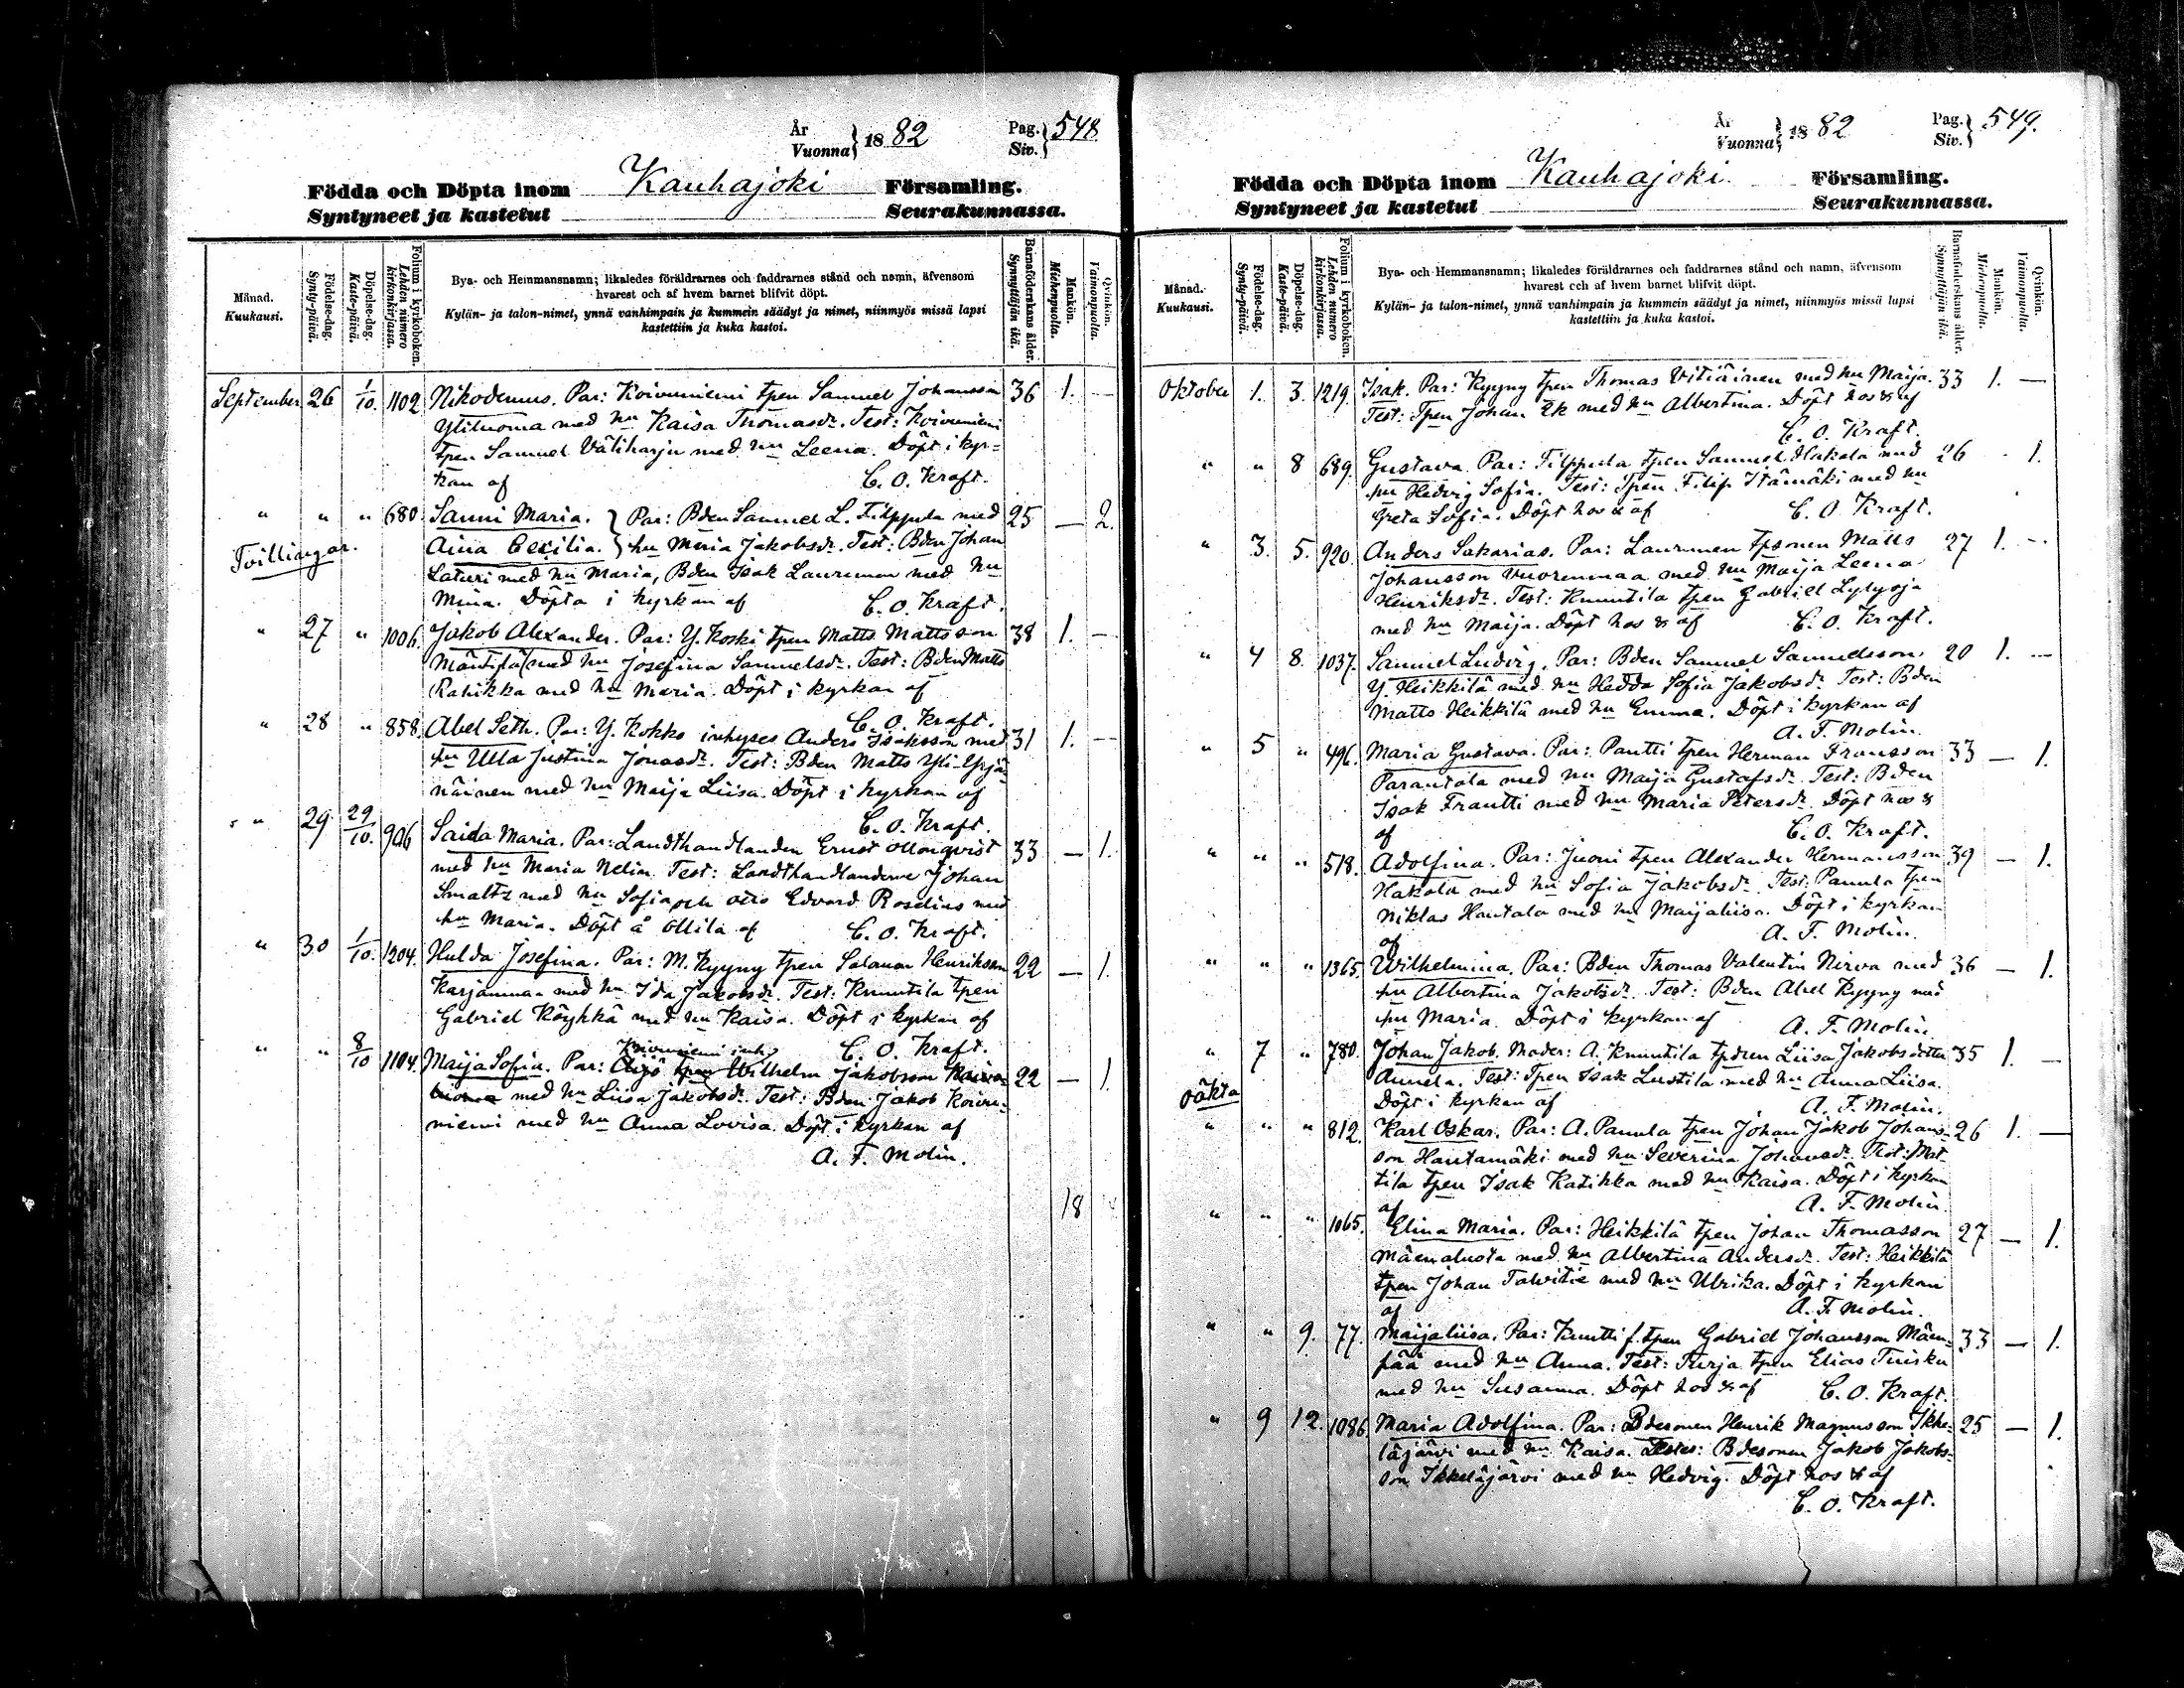 År
Vuonna } 1882
Pag.
Siv. } 548
Födda och Döpta inom Kauhajoki Församling.
Syntyneet ja kastetut Seurakunnassa.
Månad.
Kuukausi.
Födelse-dag.
Synty-päivä.
Döpelse-dag.
Kaste-päivä.
Folium i kyrkoboken.
Lehden numero kirkonkirjassa.
Bya- och Hemmansnamn; likaledes föräldrarnes och faddrarnes stånd och namn, äfvensom
hvarest och af hvem barnet blifvit döpt.
Kylän- ja talon-nimet, ynnä vanhimpain ja kummein säädyt ja nimet, niinmyös missä lapsi
kastettiin ja kuka kastoi.
Barnaföderskans ålder.
Synnyttäjän ikä.
Mankön.
Miehenpuolta.
Qvinkön.
Vaimonpuolta.
September 26 1/10. 1102 Nikodemus. Par: Koivuniemi tpen Samuel Johansson 36 1. —
Ylituoma med hu Kaisa Thomasdr. Test: Koivuniemi
tpen Samuel Väliharju med hu Leena. Döpt i kyr=
kan af C. O. Kraft.
" " " 680 Sanni Maria. } Par: Bden Samuel L. Filppula med 25 — 2.
Tvillingar. Aina Cecilia. } hu Maria Jakobsdr. Test: Bden Johan
Laturi med hu Maria, Bden Isak Laurunen med hu
Mina. Döpta i kyrkan af C. O. Kraft.
" 27 " 1006. Jakob Alexander. Par: Y. Koski tpen Matts Mattsson 38 1. —
Mäntilä med hu Josefina Samuelsdr. Test: Bden Matts
Rahikka med hu Maria. Döpt i kyrkan af
C. O. Kraft.
" 28 " 858. Abel Seth. Par: Y. Kokko inhyses Anders Isaksson med 31 1. —
hu Ulla Justina Jonasdr. Test: Bden Matts Yli-Yrjä=
näinen med hu Maija Liisa. Döpt i kyrkan af
C. O. Kraft.
" 29 29/10. 906 Saida Maria. Par: Landthandlanden Ernst Ollonqvist 33 — 1.
med hu Maria Nelin. Test: Landthandlanderne Johan
Smaltz med hu Sofia och Otto Edvard Roselius med
hu Maria. Döpt å Ollila af C. O. Kraft.
" 30 1/10. 1204. Hulda Josefina. Par: M. Kyyny tpen Salomon Henriksson 22 — 1.
Karjanmaa med hu Ida Jakobsdr. Test: Knuutila tpen
Gabriel Köykkä med hu Kaisa. Döpt i kyrkan af
C. O. Kraft.
Koivuniemi inh.
" " 8/10 1104. Maija Sofia. Par: tpen Wilhelm Jakobsson 22 — 1.
med hu Liisa Jakobsdr. Test: Bden Jakob Koivu=
niemi med hu Anna Lovisa. Döpt i kyrkan af
A. F. Molin.
18
År
Vuonna } 1882
Pag.
Siv. } 549.
Födda och Döpta inom Kauhajoki. Församling.
Syntyneet ja kastetut Seurakunnassa.
Månad.
Kuukausi.
Födelse-dag.
Synty-päivä.
Döpelse-dag.
Kaste-päivä.
Folium i kyrkoboken.
Lehden numero kirkonkirjassa.
Bya- och Hemmansnamn; likaledes föräldrarnes och faddrarnes stånd och namn, äfvensom
hvarest och af hvem barnet blifvit döpt.
Kylän- ja talon-nimet, ynnä vanhimpain ja kummein säädyt ja nimet, niinmyös missä lapsi
kastettiin ja kuka kastoi.
Barnaföderskans ålder.
Synnyttäjän ikä.
Mankön.
Miehenpuolta.
Qvinkön.
Vaimonpuolta.
Oktober 1. 3. 1219. Isak. Par: Kyyny tpen Thomas Vitiäinen med hu Maija. 33 1. —
Test: Tpen Johan Ek med hu Albertina. Döpt hos & af
C. O. Kraft.
" " 8 689. Gustava. Par: Filppula tpen Samuel Hakala med 26 1.
hu Hedvig Sofia. Test: Tpen Filip Itämäki med hu
Greta Sofia. Döpt hos & af C. O. Kraft.
" 3. 5. 920. Anders Sakarias. Par: Laurunen tpsonen Matts 27 1. —
Johansson Vuorenmaa med hu Maija Leena
Henriksdr. Test: Knuutila tpen Gabriel Lylyoja
med hu Maija. Döpt hos & af C. O. Kraft.
" 4 8. 1037. Samuel Ludvig. Par: Bden Samuel Samuelsson 20 1. —
Y. Heikkilä med hu Hedda Sofia Jakobsdr. Test: Bden
Matts Heikkilä med hu Emma. Döpt i kyrkan af
A. F. Molin.
" 5 " 496. Maria Gustava. Par: Pantti tpen Herman Fransson 33 — 1.
Parantala med hu Maija Gustafsdr. Test: Bden
Isak Frantti med hu Maria Petersdr. Döpt hos &
af C. O. Kraft.
" " " 518. Adolfina. Par: Juoni tpen Alexander Hermansson 39 — 1.
Hakala med hu Sofia Jakobsdr. Test: Panula tpen
Niklas Hautala med hu Maijaliisa. Döpt i kyrkan
af A. F. Molin.
" " " 1365. Wilhelmina. Par: Bden Thomas Valentin Nirva med 36 — 1.
hu Albertina Jakobsdr. Test: Bden Abel Kyyny med
hu Maria. Döpt i kyrkan af A. F. Molin
" 7 " 780. Johan Jakob. Moder: A. Knuutila tpdren Liisa Jakobsdotter 35 1. —
oäkta Annela. Test: Tpen Isak Lustila med hu Anna Liisa.
Döpt i kyrkan af A. F. Molin.
" " " 812. Karl Oskar. Par: A. Panula tpen Johan Jakob Johans= 26 1. —
son Hautamäki med hu Severina Johansdr. Test: Mat=
tila tpen Isak Katikka med hu Kaisa. Döpt i kyrkan
af A. F. Molin.
" " " 1065. Elina Maria. Par: Heikkilä tpen Johan Thomasson 27 — 1.
Mäenalusta med hu Albertina Andersdr. Test: Heikkilä
tpen Johan Talvitie med hu Ulrika. Döpt i kyrkan
af A. F. Molin.
" " 9. 77. Maijaliisa. Par: Knutti f. tpen Gabriel Johansson Mäen= 33 — 1.
pää med hu Anna. Test: Turja tpen Elias Tuisku
med hu Susanna. Döpt hos & af C. O. Kraft.
" 9 12. 1086. Maria Adolfina. Par: Bdesonen Henrik Magnusson Ikke= 25 — 1.
läjärvi med hu Kaisa. Testes: Bdesonen Jakob Jakobs=
son Ikkeläjärvi med hu Hedvig. Döpt hos & af
C. O. Kraft.